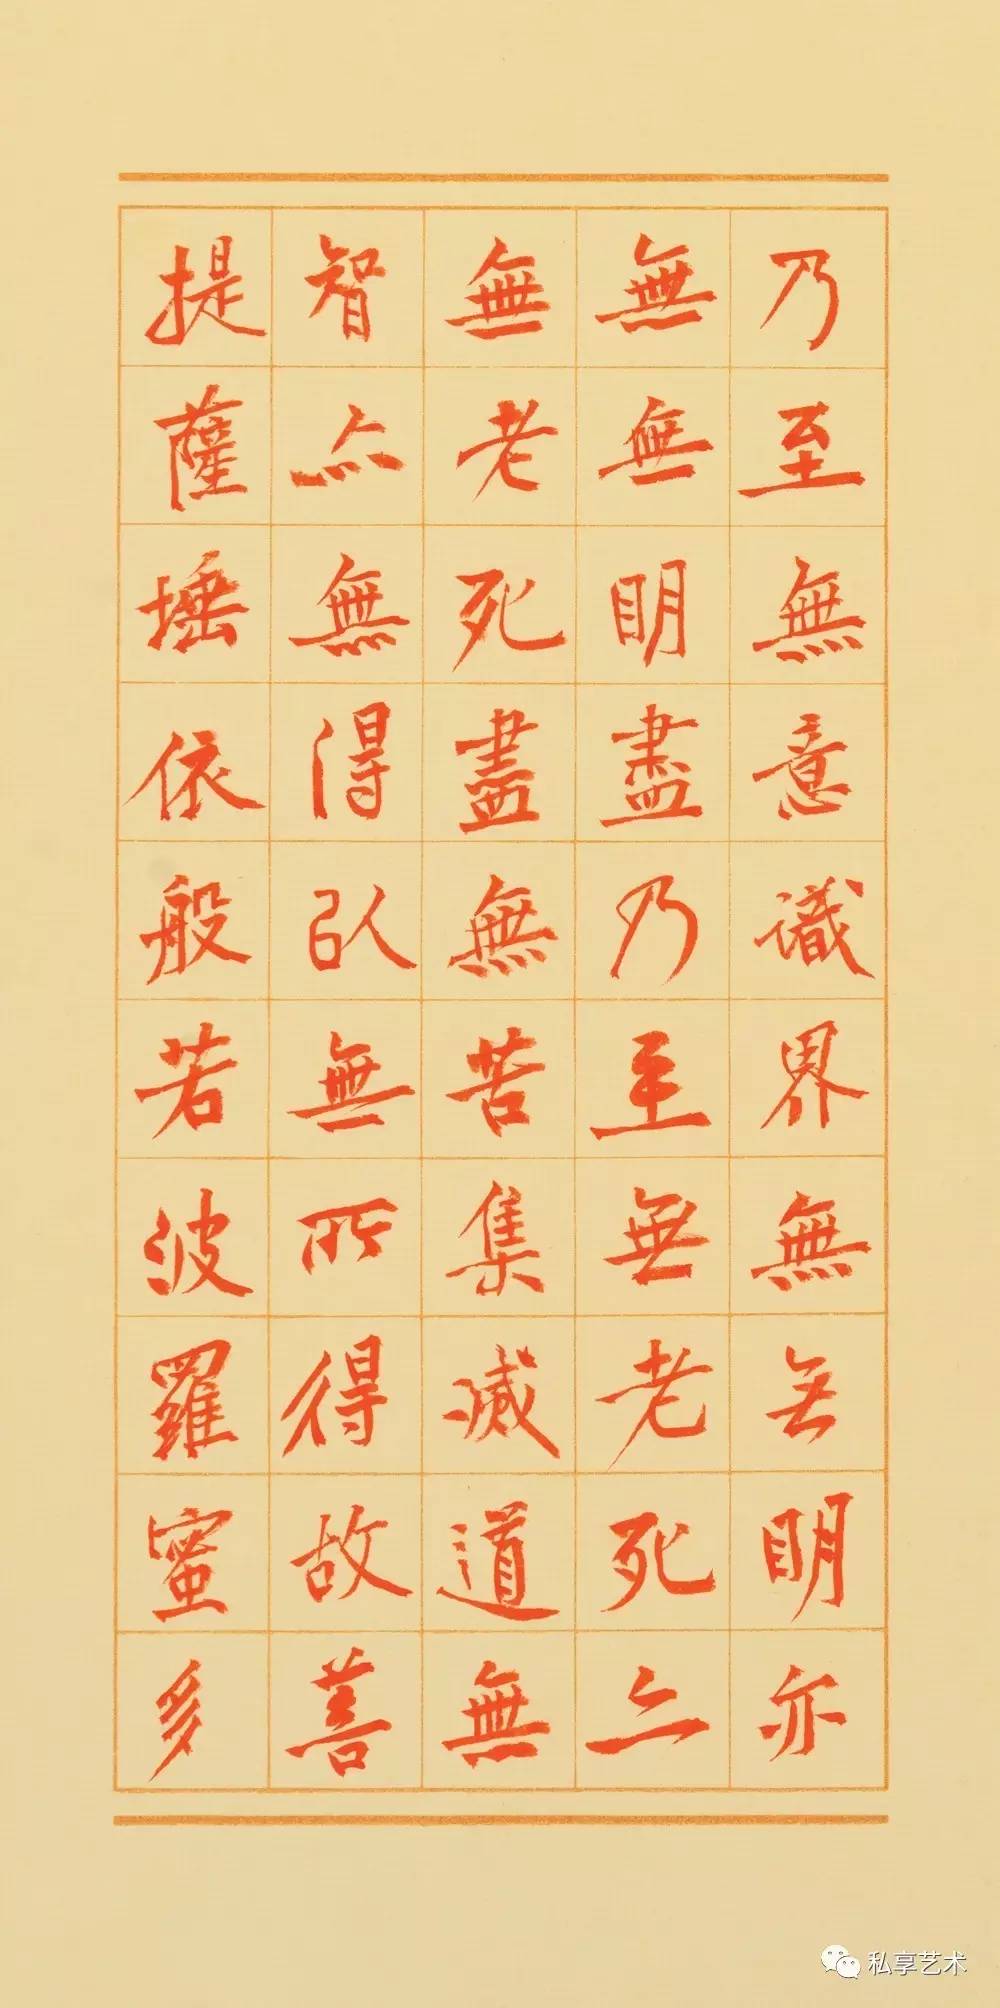 乃至無意識界無无明亦
無無明盡乃至無老死亦
無老死盡無苦集滅道無
智亦無得以無所得故菩
提薩埵依般若波羅蜜多
私享艺术